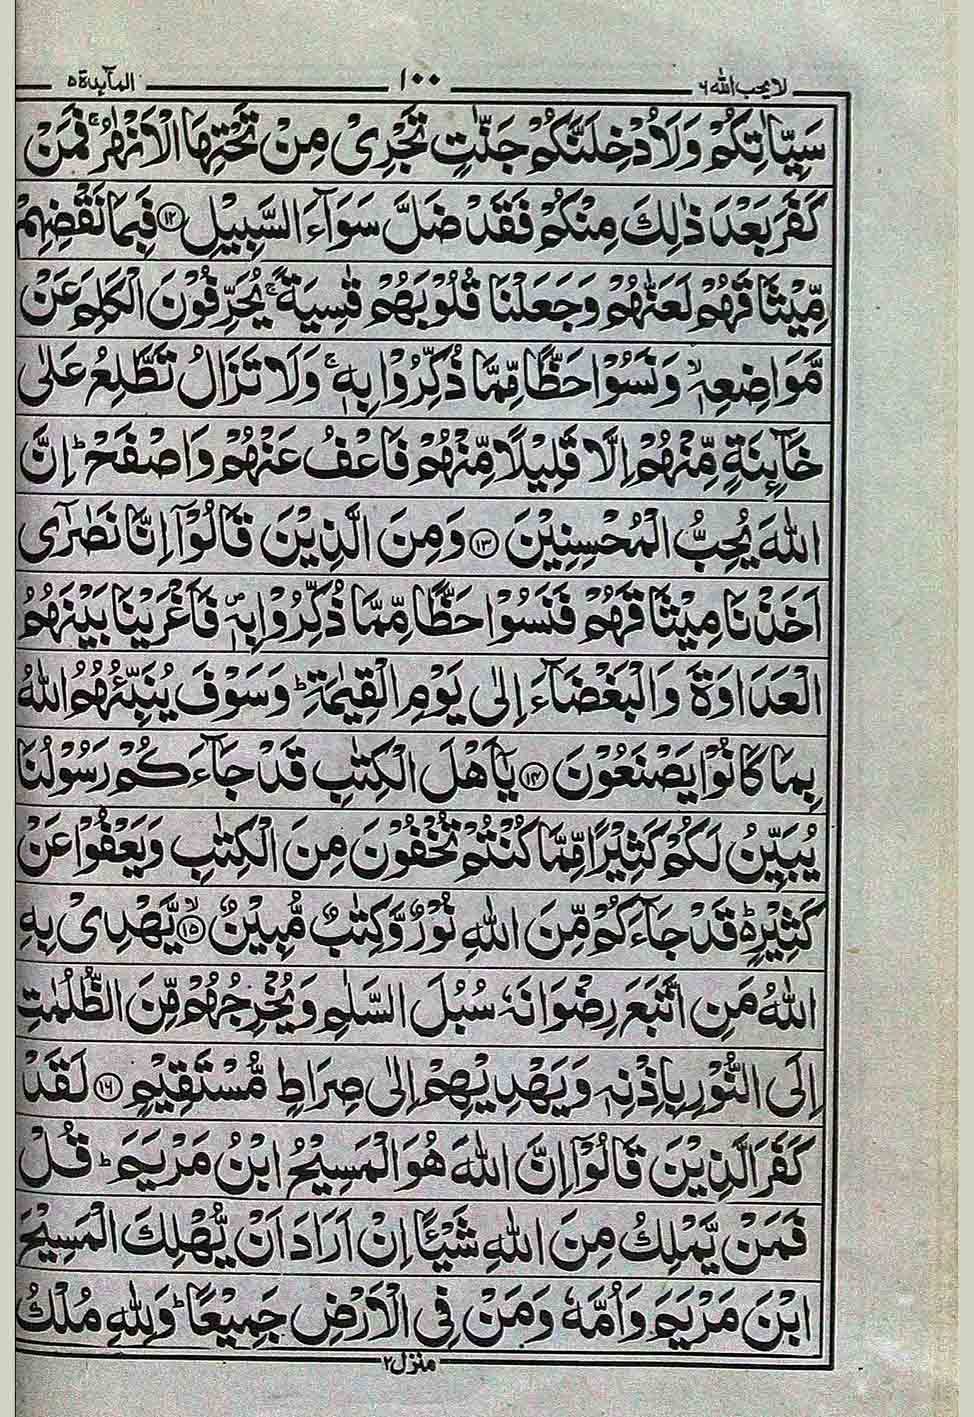 لا یحب الله ۶ ۱۰۰ المآىِٕدة ۵
سَیِّاٰتِكُمْ وَلَاُدْخِلَنَّكُمْ جَنّٰتٍ تَجْرِیْ مِنْ تَحْتِهَا الْاَنْهٰرُ ۚ فَمَنْ
كَفَرَ بَعْدَ ذٰلِكَ مِنْكُمْ فَقَدْ ضَلَّ سَوَآءَ السَّبِیْلِ ﴿۱۲﴾ فَبِمَا نَقْضِهِمْ
مِّیْثَاقَهُمْ لَعَنّٰهُمْ وَجَعَلْنَا قُلُوْبَهُمْ قٰسِیَةً ۚ یُحَرِّفُوْنَ الْكَلِمَ عَنْ
مَّوَاضِعِهٖ ۙ وَنَسُوْا حَظًّا مِّمَّا ذُكِّرُوْا بِهٖ ۚ وَلَا تَزَالُ تَطَّلِعُ عَلٰی
خَآىِٕنَةٍ مِّنْهُمْ اِلَّا قَلِیْلًا مِّنْهُمْ فَاعْفُ عَنْهُمْ وَاصْفَحْ ؕ اِنَّ
اللّٰهَ یُحِبُّ الْمُحْسِنِیْنَ ﴿۱۳﴾ وَمِنَ الَّذِیْنَ قَالُوْۤا اِنَّا نَصٰرٰۤی
اَخَذْنَا مِیْثَاقَهُمْ فَنَسُوْا حَظًّا مِّمَّا ذُكِّرُوْا بِهٖ ۪ فَاَغْرَیْنَا بَیْنَهُمُ
الْعَدَاوَةَ وَالْبَغْضَآءَ اِلٰی یَوْمِ الْقِیٰمَةِ ؕ وَسَوْفَ یُنَبِّئُهُمُ اللّٰهُ
بِمَا كَانُوْا یَصْنَعُوْنَ ﴿۱۴﴾ یٰۤاَهْلَ الْكِتٰبِ قَدْ جَآءَكُمْ رَسُوْلُنَا
یُبَیِّنُ لَكُمْ كَثِیْرًا مِّمَّا كُنْتُمْ تُخْفُوْنَ مِنَ الْكِتٰبِ وَیَعْفُوْا عَنْ
كَثِیْرٍ ؕ قَدْ جَآءَكُمْ مِّنَ اللّٰهِ نُوْرٌ وَّكِتٰبٌ مُّبِیْنٌ ۙ﴿۱۵﴾ یَّهْدِیْ بِهِ
اللّٰهُ مَنِ اتَّبَعَ رِضْوَانَهٗ سُبُلَ السَّلٰمِ وَیُخْرِجُهُمْ مِّنَ الظُّلُمٰتِ
اِلَی النُّوْرِ بِاِذْنِهٖ وَیَهْدِیْهِمْ اِلٰی صِرَاطٍ مُّسْتَقِیْمٍ ﴿۱۶﴾ لَقَدْ
كَفَرَ الَّذِیْنَ قَالُوْۤا اِنَّ اللّٰهَ هُوَ الْمَسِیْحُ ابْنُ مَرْیَمَ ؕ قُلْ
فَمَنْ یَّمْلِكُ مِنَ اللّٰهِ شَیْـًٔا اِنْ اَرَادَ اَنْ یُّهْلِكَ الْمَسِیْحَ
ابْنَ مَرْیَمَ وَاُمَّهٗ وَمَنْ فِی الْاَرْضِ جَمِیْعًا ؕ وَلِلّٰهِ مُلْكُ
منزل ۲